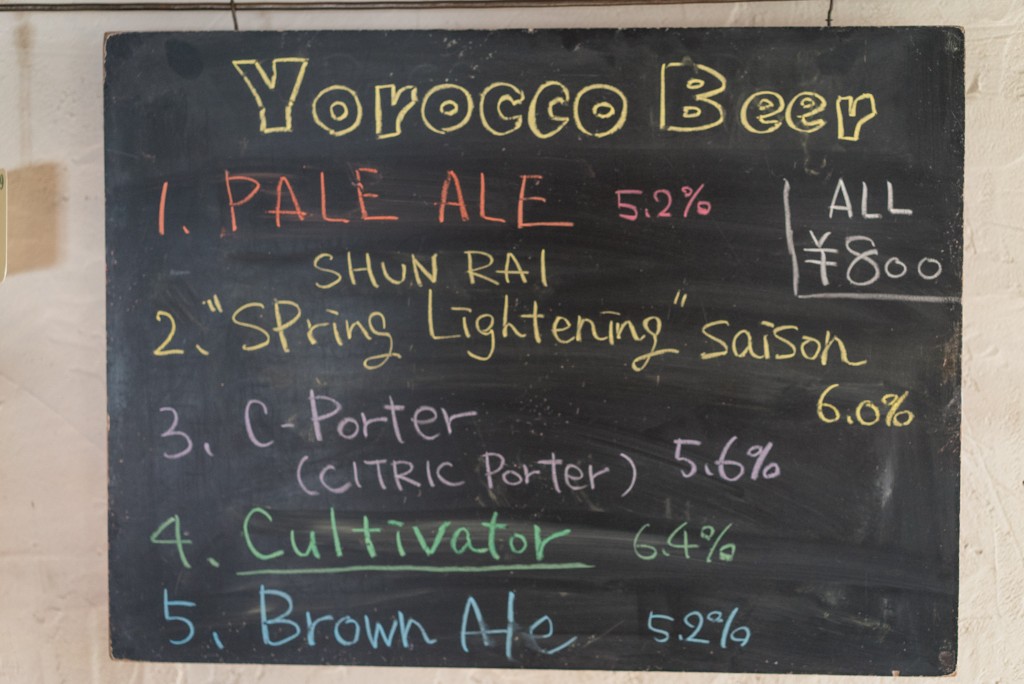 Yorocco Beer
1. PALE ALE 5.2%
ALL
¥800
SHUN RAI
2. "Spring Lightening" saison
6.0%
3. C-Porter
(CITRIC Porter) 5.6%
4. Cultivator 6.4%
5. Brown Ale 5.2%